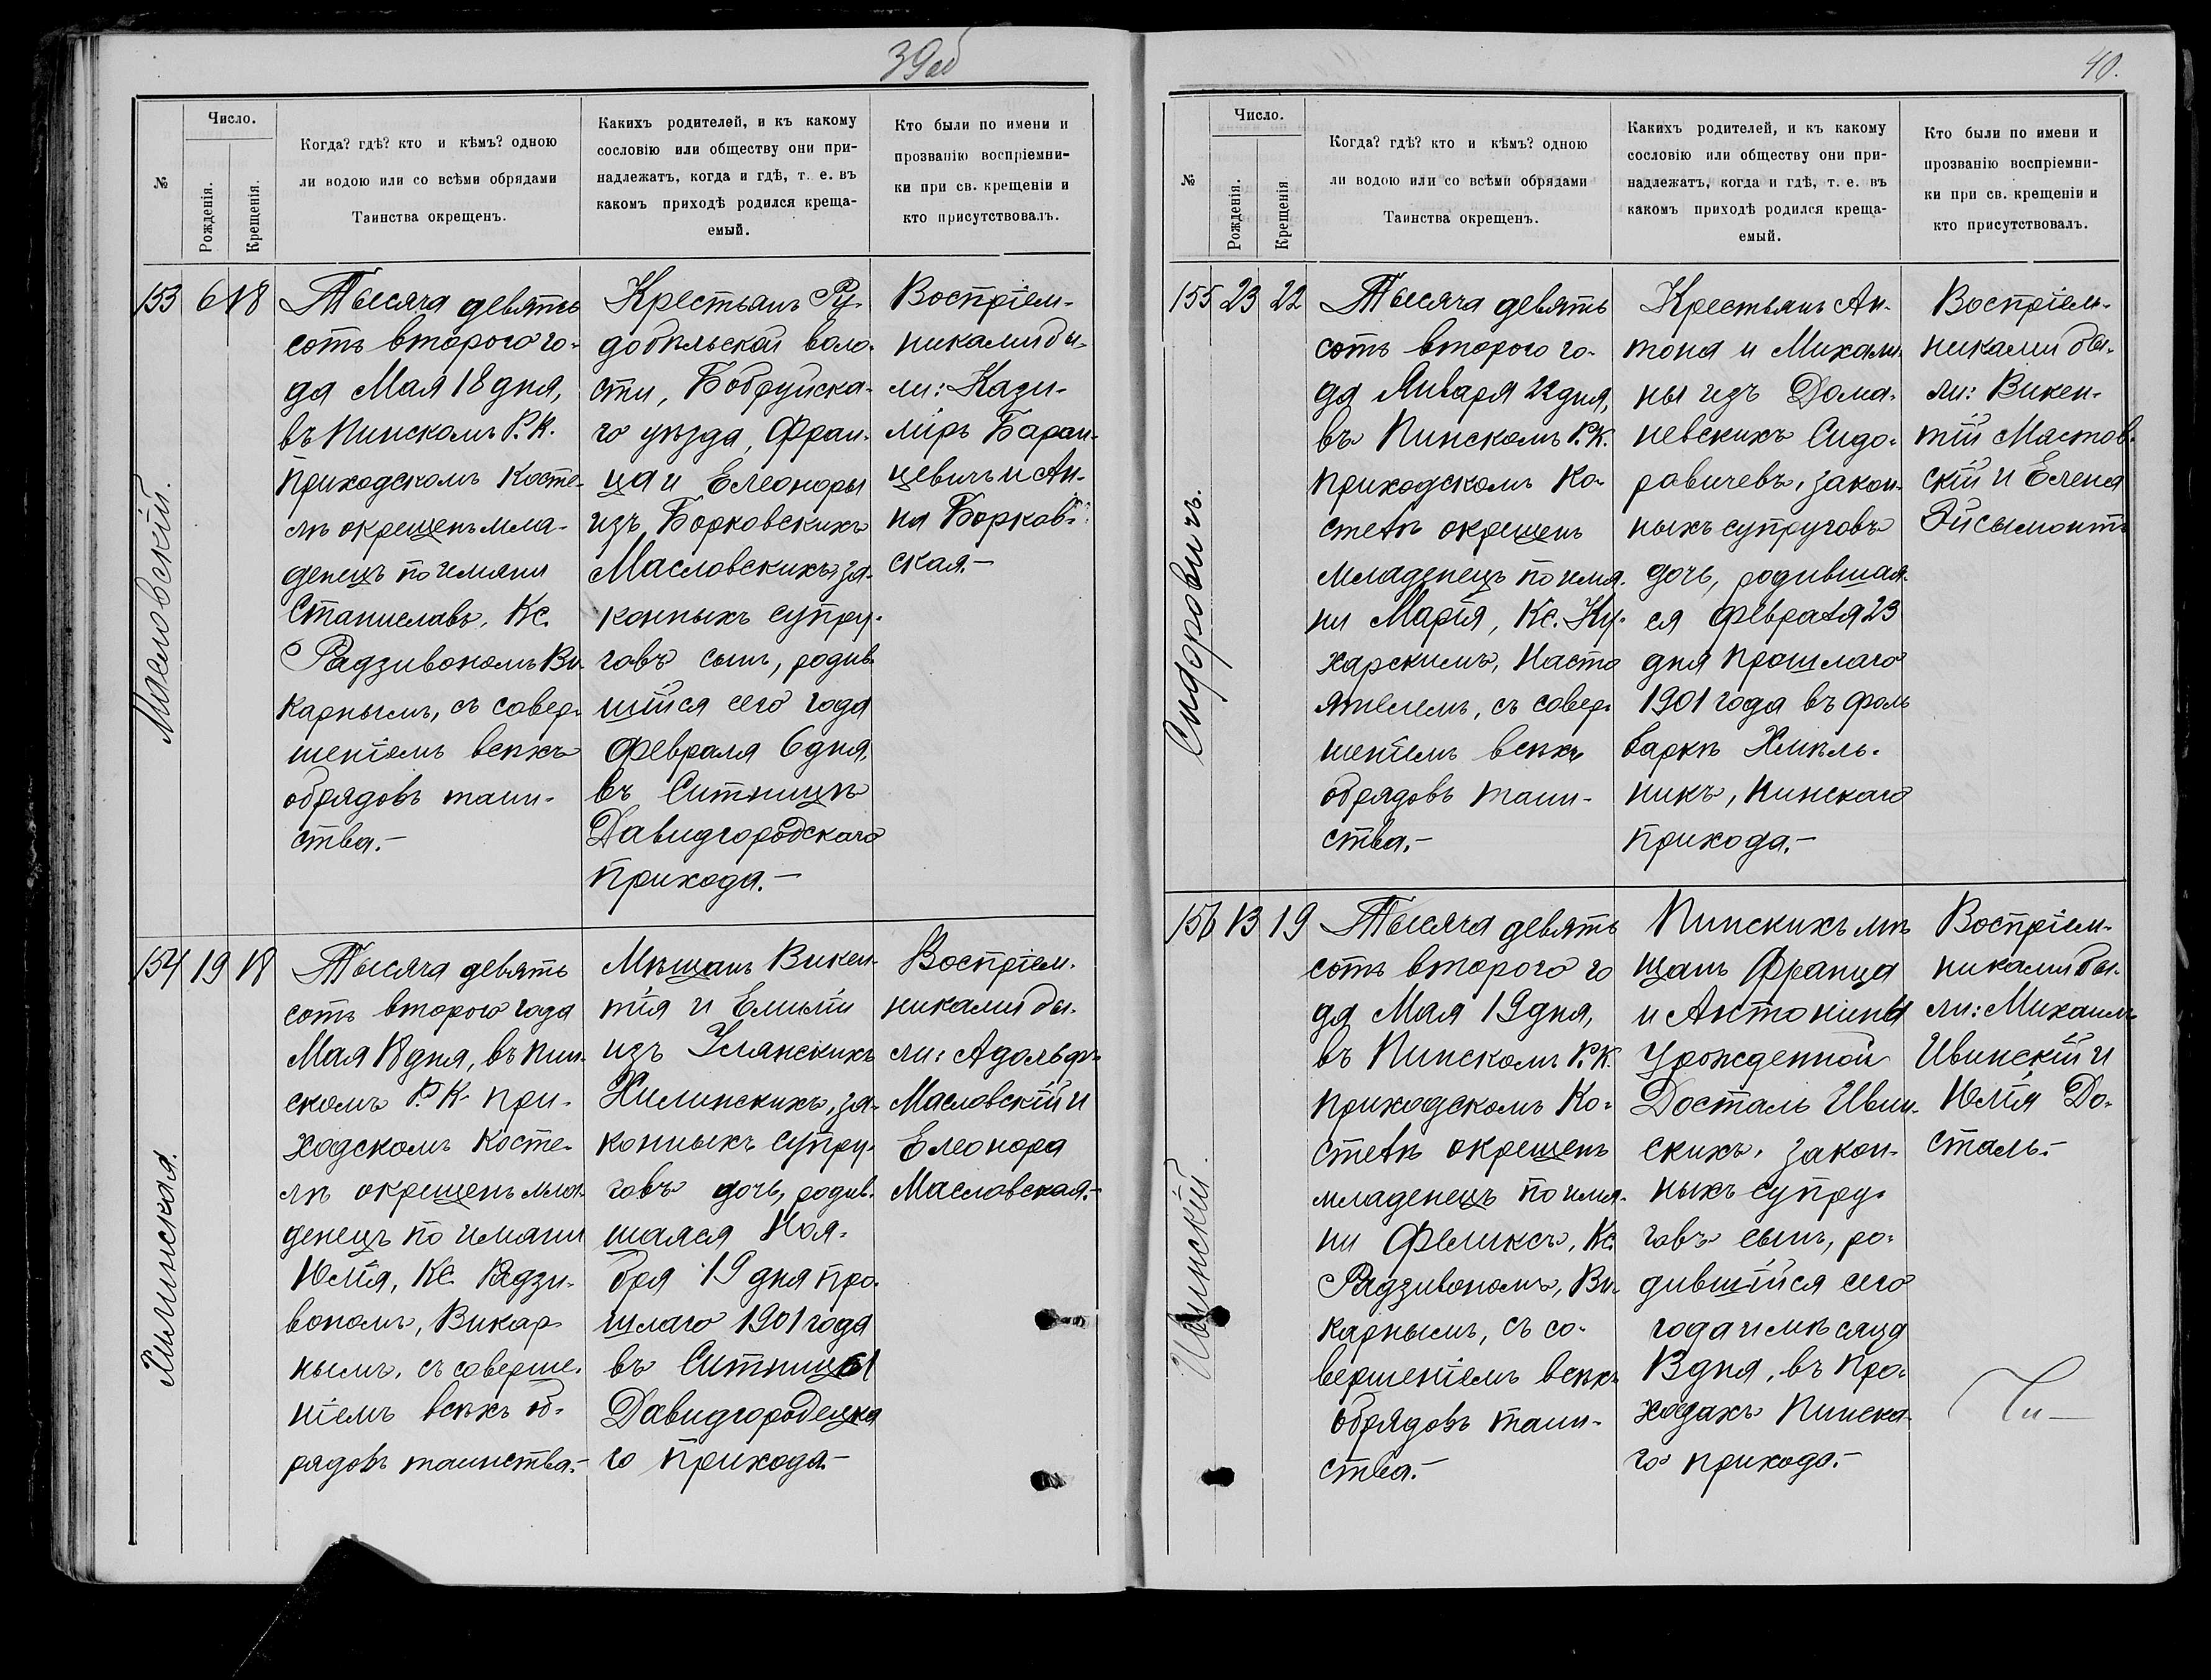 39об
№
Число.
Рожденія.
Крещенія.
Когда? гдѣ? кто и кѣмъ? одною
ли водою или со всѣми обрядами
Таинства окрещенъ.
Какихъ родителей, и къ какому
сословію или обществу они при-
надлежатъ, когда и гдѣ, т. е. въ
какомъ приходѣ родился креща-
емый.
Кто были по имени и
прозванію воспріемни-
ки при св. крещеніи и
кто присутствовалъ.
Масловскій.
153 6 18
Тысяча девять
сотъ второго го-
да Мая 18 дня,
въ Пинскомъ Р. К.
приходскомъ Косте-
лѣ окрещенъ мла-
денецъ по имяни
Станиславъ, Кс.
Радзивономъ Ви-
карнымъ, съ совер-
шеніемъ всѣхъ
обрядовъ таин-
ства.-
Крестьянъ Ру-
добѣльской воло-
сти, Бобруйска-
го уѣзда, Фран-
ца и Елеоноры
изъ Борковскихъ
Масловскихъ, за-
конныхъ супру-
говъ сынъ, родив-
шійся сего года
Февраля 6 дня,
въ Ситницѣ
Давидгородскаго
прихода.-
Воспріем-
никами бы-
ли: Кази-
міръ Баран-
цевичъ и Ан-
на Борков-
ская.-
Хилинская.
154 19 18
Тысяча девять
сотъ второго года
Мая 18 дня, въ Пин-
скомъ Р. К. при-
ходскомъ Косте-
лѣ окрещенъ мла-
денецъ по имяни
Юлія, Кс. Радзи-
вономъ, Викар-
нымъ, съ соверше-
ніемъ всѣхъ об-
рядовъ таинства.-
Мѣщанъ Викен-
тія и Емиліи
изъ Услянскихъ
Хилинскихъ, за-
конныхъ супру-
говъ дочь, родив-
шаяся Ноя-
бря 19 дня про-
шлаго 1901 года
въ Ситницы
Давидгородецка
го прихода.-
Воспріем-
никами бы-
ли: Адольфъ
Масловскій и
Елеонора
Масловская.-
40.
№
Число.
Рожденія.
Крещенія
Когда? гдѣ? кто и кѣмъ? одною
ли водою или со всѣми обрядами
Таинства окрещенъ.
Какихъ родителей, и къ какому
сословію или обществу они при-
надлежатъ, когда и гдѣ, т. е. въ
какомъ приходѣ родился креща-
емый.
Кто были по имени и
прозванію воспріемни-
ки при св. крещеніи и
кто присутствовалъ.
Сидоровичъ.
155 23 22
Тысяча девять
сотъ второго го-
да Января 22 дня,
въ Пинскомъ Р. К.
приходскомъ Ко-
стелѣ окрещенъ
младенецъ по имя-
ни Марія, Кс. Ку-
харскимъ, Насто
ятелемъ, съ совер-
шеніемъ всѣхъ
обрядовъ таин-
ства.-
Крестьянъ Ан-
тона и Михали-
ны изъ Дома-
невскихъ Сидо-
ровичевъ, закон-
ныхъ супруговъ
дочь, родившая-
ся Февраля 23
дня прошлаго
1901 года въ фоль
варкѣ Хмѣль-
никъ, Пинскаго
прихода.-
Воспріем-
никами бы-
ли: Викен-
тій Мастов-
скій и Елена
Эйсымонтъ
Ивинскій.
156 13 19
Тысяча девять
сотъ второго го
да Мая 19 дня,
въ Пинскомъ Р. К.
приходскомъ Ко-
стелѣ окрещенъ
младенецъ по имя-
ни Феликсъ, Кс.
Радзивономъ, Ви-
карнымъ, съ со-
вершеніемъ всѣхъ
обрядовъ таин-
ства.-
Пинскихъ мѣ
щанъ Франца
и Антонины
Урожденной
Досталь Ивин-
скихъ, закон-
ныхъ супру-
говъ сынъ, ро-
дившійся сего
года и мѣсяца
13 дня, въ Про-
ходахъ Пинска-
го прихода.-
Воспріем-
никами бы-
ли: Михаилъ
Ивинскій и
Юлія До-
сталь.-